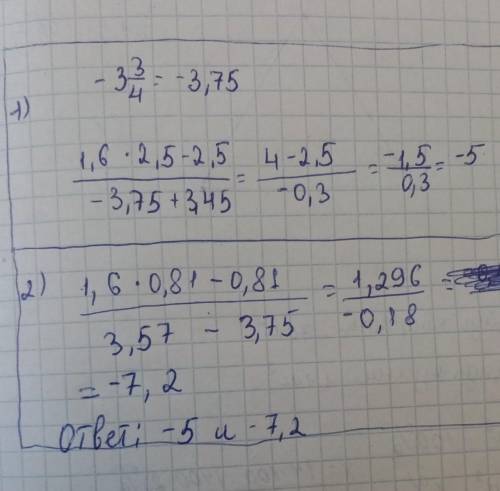 - 3 3/4 = -3,75
1)
(1,6 · 2,5 - 2,5)/(-3,75 + 3,45) = (4 - 2,5)/(-0,3) = (-1,5)/(0,3) = -5
2) (1,6 · 0,81 - 0,81)/(3,57 - 3,75) = (1,296)/(-0,18) =
= -7,2
Ответ: -5 и -7,2